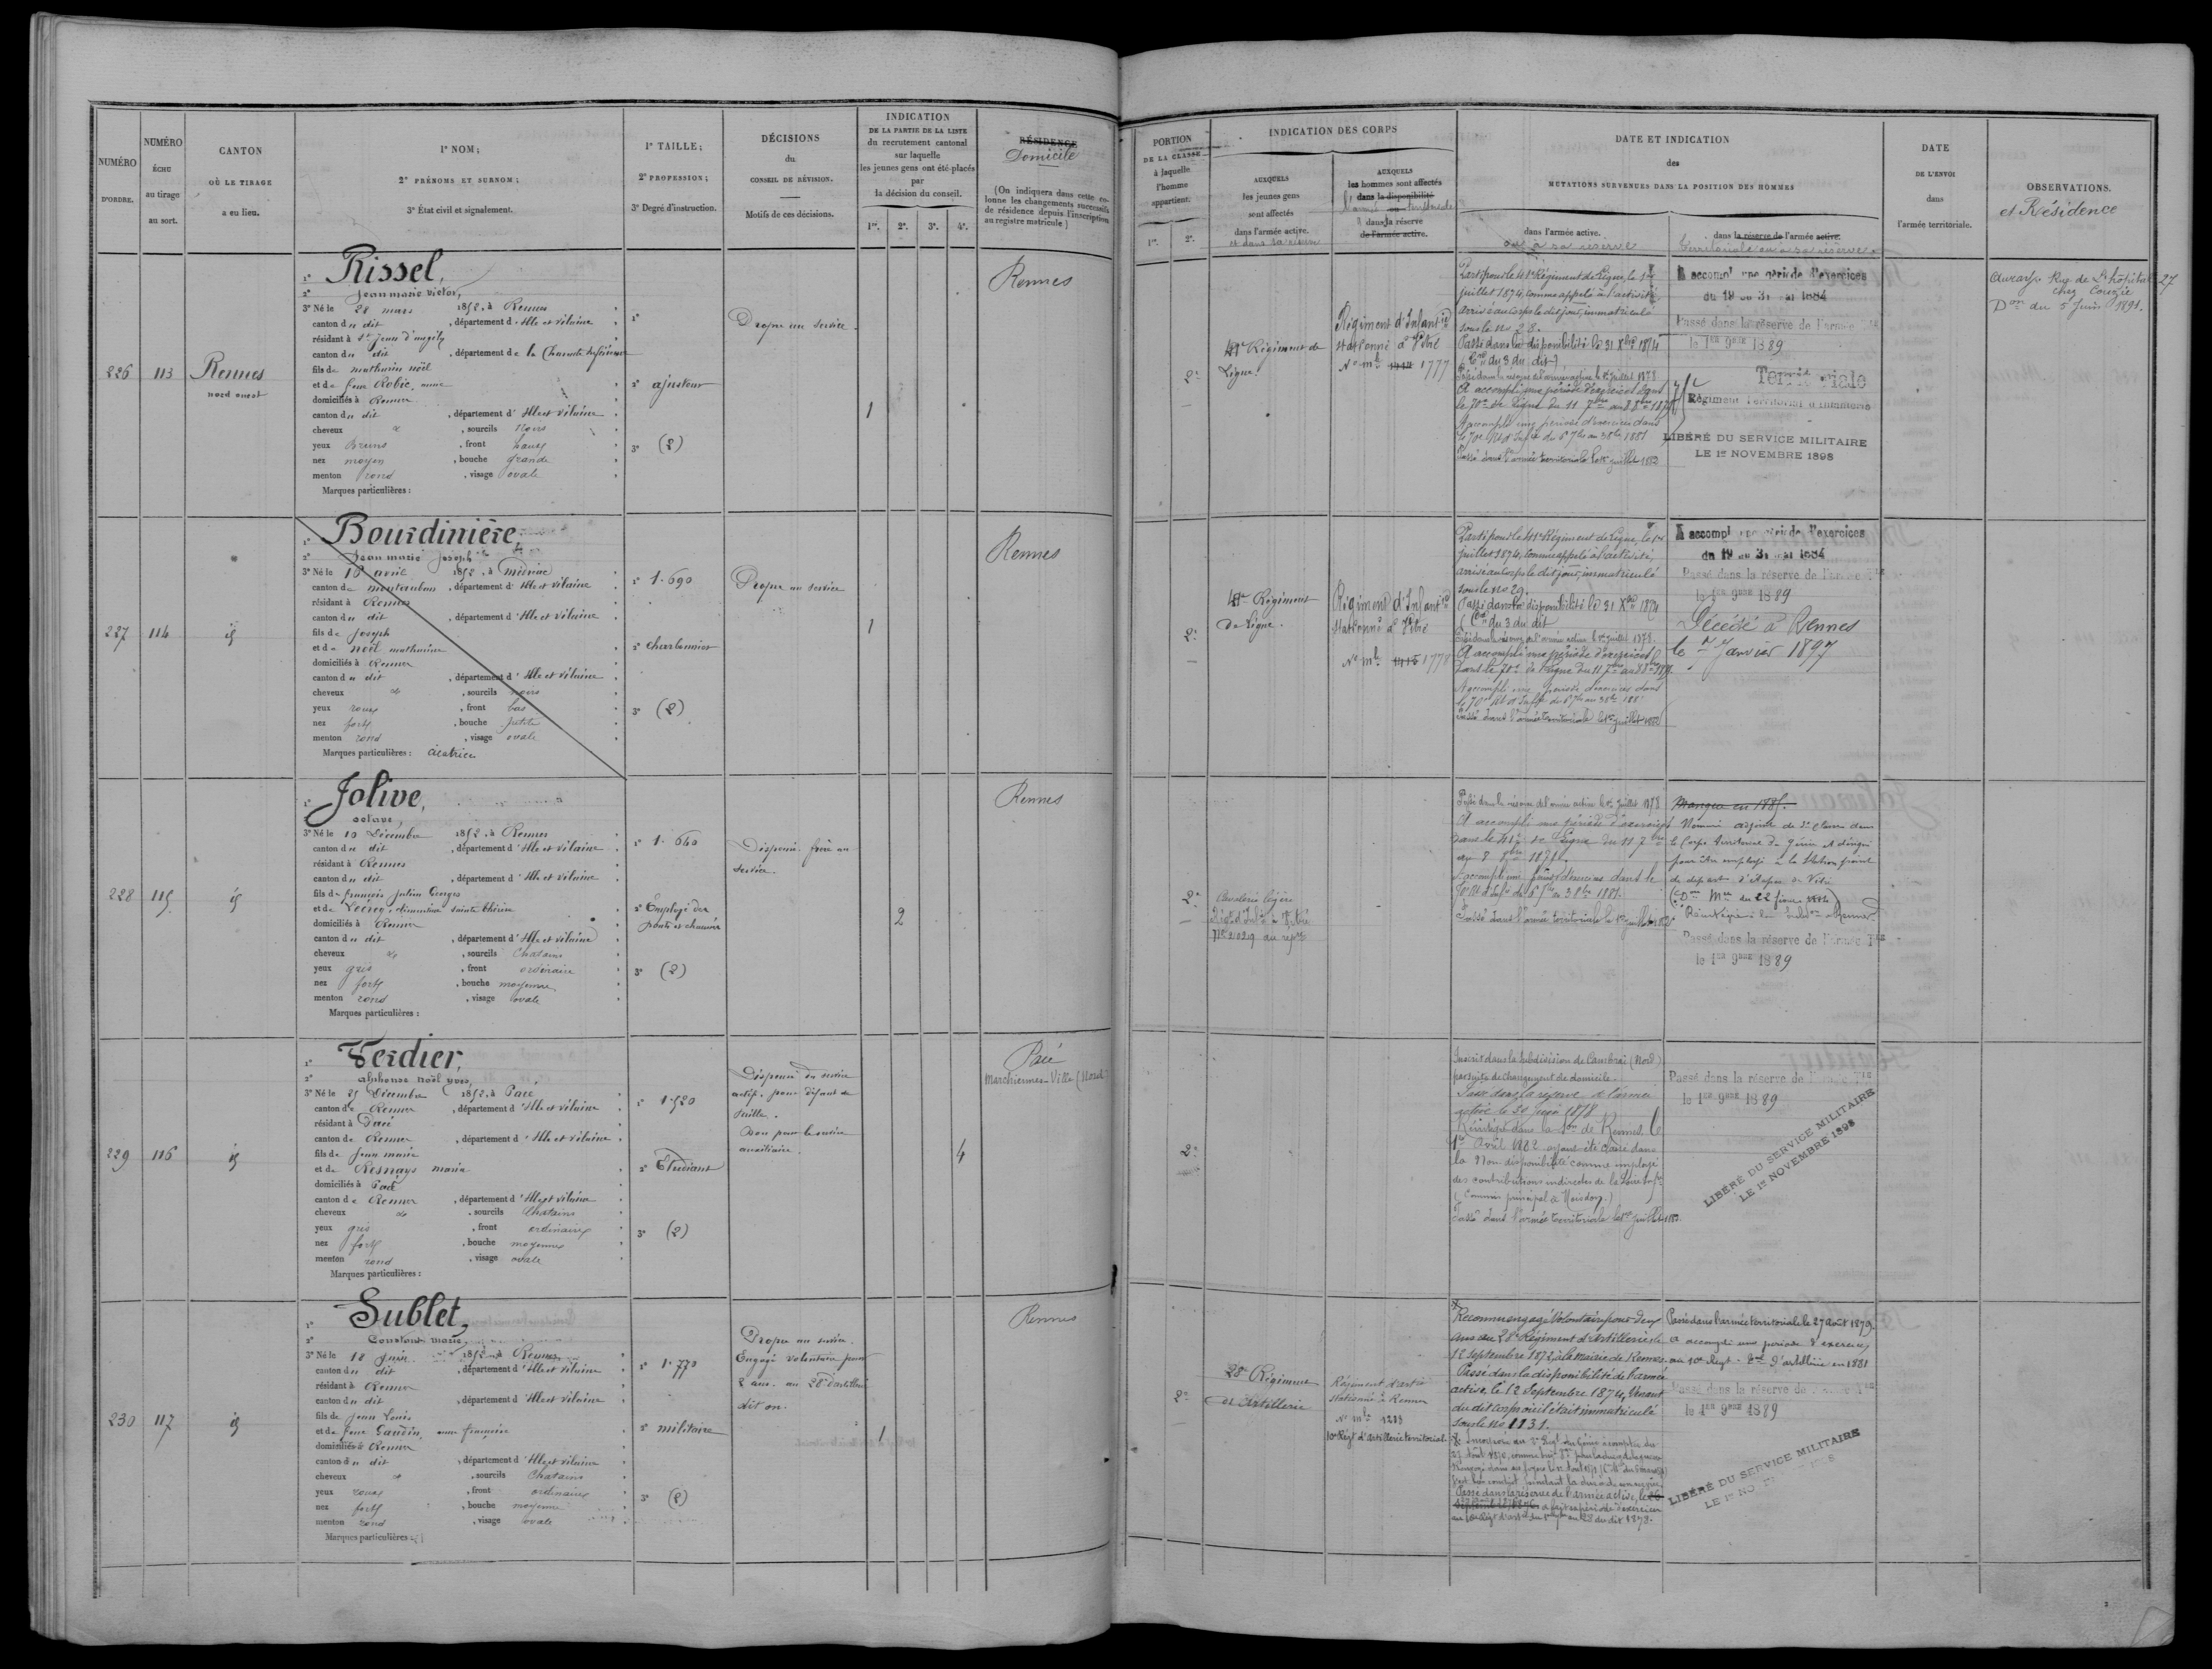 NUMÉRO
D'ORDRE.
NUMÉRO
ÉCHU
au tirage
au sort.
CANTON
OÙ LE TIRAGE
a eu lieu.
1° NOM;
2° PRÉNOMS ET SURNOM;
3° État civil et signalement.
1° TAILLE;
2° PROFESSION;
3° Degré d'instruction.
DÉCISIONS
du
CONSEIL DE RÉVISION.
Motifs de ces décisions.
INDICATION
DE LA PARTIE DE LA LISTE
du recrutement cantonal
sur laquelle
les jeunes gens ont été placés
par
la décision du conseil.
1re. 2e. 3e. 4e.
RÉSIDENCE
Domicile
(On indiquera dans cette colonne
les changements successifs
de résidence depuis l'inscription
au registre matricule)
PORTION
DE LA CLASSE
à laquelle
l'homme
appartient.
1re. 2e.
INDICATION DES CORPS
AUXQUELS
les jeunes gens
sont affectés
dans l'armée active.
et dans sa réserve
AUXQUELS
les hommes sont affectés
dans la disponibilité
l'armée territoriale
dans la réserve
de l'armée active.
DATE ET INDICATION
des
MUTATIONS SURVENUES DANS LA POSITION DES HOMMES
dans l'armée active.
ou à sa réserve
dans la réserve de l'armée active.
territoriale ou à sa réserve
DATE
DE L'ENVOI
dans
l'armée territoriale.
OBSERVATIONS.
et Résidence
226
113
Rennes
nord ouest
1° Rissel,
2° Jean marie victor,
3° Né le 28 mars 1852, à Rennes
canton du dit, département d'Ille et vilaine
résidant à St Jean d'angely
canton du dit, département de la Charente inférieure
fils de mathurin noël
et de feue Robic, anne
domiciliés à Rennes
canton du dit, département d'Ille et vilaine
cheveux &, sourcils Noirs
yeux Bruns, front haut
nez moyen, bouche grande
menton rond, visage ovale
Marques particulières :
1°
2° ajusteur
3° (2)
Propre au service.
1
Rennes
2e
41e Régiment de
Ligne.
Régiment d'Infantie
stationné à Vitré
No mle 1777
Parti pour le 41e Régiment de Ligne, le 1er
juillet 1874, comme appelé à l'activité
arrivé au corps le dit jour, immatriculé
sous le No 28.
Passé dans la disponibilité le 31 Xbre 1874
Passé dans la réserve de l'armée active le 1er Juillet 1878
A accompli une période d'exercices dans
le 70e de Ligne du 11 7bre au 8 8bre
A accompli une période d'exercices dans
Passé dans l'armée territoriale le 1er juillet 1882
A accompli une période d'exercices
du 19 au 31 mai 1884
Passé dans la réserve de l'armée Tle
le 1er 9bre 1889
Territoriale
Régiment Territorial d'Infanterie
LIBÉRÉ DU SERVICE MILITAIRE
LE 1er NOVEMBRE 1898
Rue de L'hôpital 27
Don du 5 Juin 1891.
227
114
id
1° Bourdinière,
2° Jean marie Joseph
3° Né le 16 avril 1852, à Médréac
canton de montauban, département d'Ille et vilaine
résidant à Rennes
canton du dit, département d'Ille et vilaine
fils de Joseph
et de noël mathurine
domiciliés à Rennes
canton du dit, département d'Ille et vilaine
cheveux &, sourcils noirs
yeux roux, front bas
nez fort, bouche petite
menton rond, visage ovale
Marques particulières : Cicatrice
1° 1.690
2° charbonnier
3° (2)
Propre au service
1
Rennes
2e
41e Régiment
de Ligne.
Régiment d'Infantie
stationné à Vitré
No mle 1778
Parti pour le 41e Régiment de Ligne, le 1er
juillet 1874, comme appelé à l'activité,
arrivé au corps le dit jour, immatriculé
sous le No 29.
Passé dans la disponibilité le 31 Xbre 1874
Passé dans la réserve de l'armée active le 1er Juillet 1878.
A accompli une période d'exercices
dans le 70e de Ligne du 11 7bre au 8 8bre
A accompli une période d'exercices dans
Passé dans l'armée territoriale le 1er juillet 1882
A accompli une période d'exercices
du 19 au 31 mai 1884
Passé dans la réserve de l'armée Tle
le 1er 9bre 1889
Décédé à Rennes
le 1er Janvier 1897
228
115
id
1° Jolive,
2° octave,
3° Né le 10 Décembre 1852, à Rennes
canton du dit, département d'Ille et vilaine
résidant à Rennes
canton du dit, département d'Ille et vilaine
fils de françois Julien Georges
domiciliés à Rennes
canton du dit, département d'Ille et vilaine
cheveux &, sourcils Chatains
yeux gris, front ordinaire
nez fort, bouche moyenne
menton rond, visage ovale
Marques particulières :
1° 1.640
2° Employé des
ponts et chaussées
3° (2)
Dispensé. frère au
service.
2
Rennes
2e
Cavalerie légère
Passé dans la réserve de l'armée active le 1er Juillet 1878
A accompli une période d'exercices
dans le 41e de Ligne du 11 7bre
Passé dans l'armée territoriale le 1er juillet 1882
Manque en 1885.
Nommé adjoint de 2e classe dans
le Corps territorial du Génie et désigné
pour être employé à la Station point
de départ d'étapes de Vitré
Passé dans la réserve de l'armée Tle
le 1er 9bre 1889
229
116
id
1° Verdier,
2° alphonse noël yves,
3° Né le 25 Décembre 1852, à Pacé
canton de Rennes, département d'Ille et vilaine
résidant à Pacé
canton de Rennes, département d'Ille et vilaine
fils de Jean marie
et de Resnays marie
domiciliés à Pacé
canton de Rennes, département d'Ille et vilaine
cheveux &, sourcils Chatains
yeux gris, front ordinaire
nez fort, bouche moyenne
menton rond, visage ovale
Marques particulières :
1° 1.520
2° Etudiant
3° (2)
Dispensé du service
actif, pour défaut de
taille.
Bon pour le service
auxiliaire.
4
Pacé
Marchiennes-Ville (Nord)
2e
Inscrit dans la subdivision de Cambrai (Nord)
par suite de changement de domicile.
Passé dans la réserve de l'armée
active le 30 juin 1878
Réintégré dans la Son de Rennes le
1er Avril 1882 ayant été classé dans
la Non disponibilité comme employé
des contributions indirectes de la Loire Infre
(Commis principal à Moisdon.)
Passé dans l'armée territoriale le 1er juillet 1882.
Passé dans la réserve de l'armée Tle
le 1er 9bre 1889
LIBÉRÉ DU SERVICE MILITAIRE
LE 1er NOVEMBRE 1898
230
117
id
1° Sublet,
2° Constant marie,
3° Né le 18 Juin 1852, à Rennes
canton du dit, département d'Ille et vilaine
résidant à Rennes
canton du dit, département d'Ille et vilaine
fils de Jean Louis
et de feue Gaudin, anne françoise
domiciliés à Rennes
canton du dit, département d'Ille et vilaine
cheveux &, sourcils Chatains
yeux roux, front ordinaire
nez fort, bouche moyenne
menton rond, visage ovale
Marques particulières :
1° 1.770
2° militaire
3° (2)
Propre au service.
Engagé volontaire pour
2 ans. au 28e d'artillerie
dit on.
1
Rennes
2e
28e Régiment
d'Artillerie
Régiment d'artie
stationné à Rennes
No mle 1288
10e Régt d'artillerie territorial.
Reconnu engagé volontaire pour deux
ans au 28e Régiment d'Artillerie le
12 septembre 1872, à la Mairie de Rennes.
Passé dans la disponibilité de l'armée
active, le 12 Septembre 1874, venant
du dit corps où il était immatriculé
sous le No 1131.
Passé dans la réserve de l'armée active, le
Passé dans l'armée territoriale le 27 août 1879.
a accompli une période d'exercices
au 10e Régt d'artillerie en 1881
Passé dans la réserve de l'armée Tle
le 1er 9bre 1889
LIBÉRÉ DU SERVICE MILITAIRE